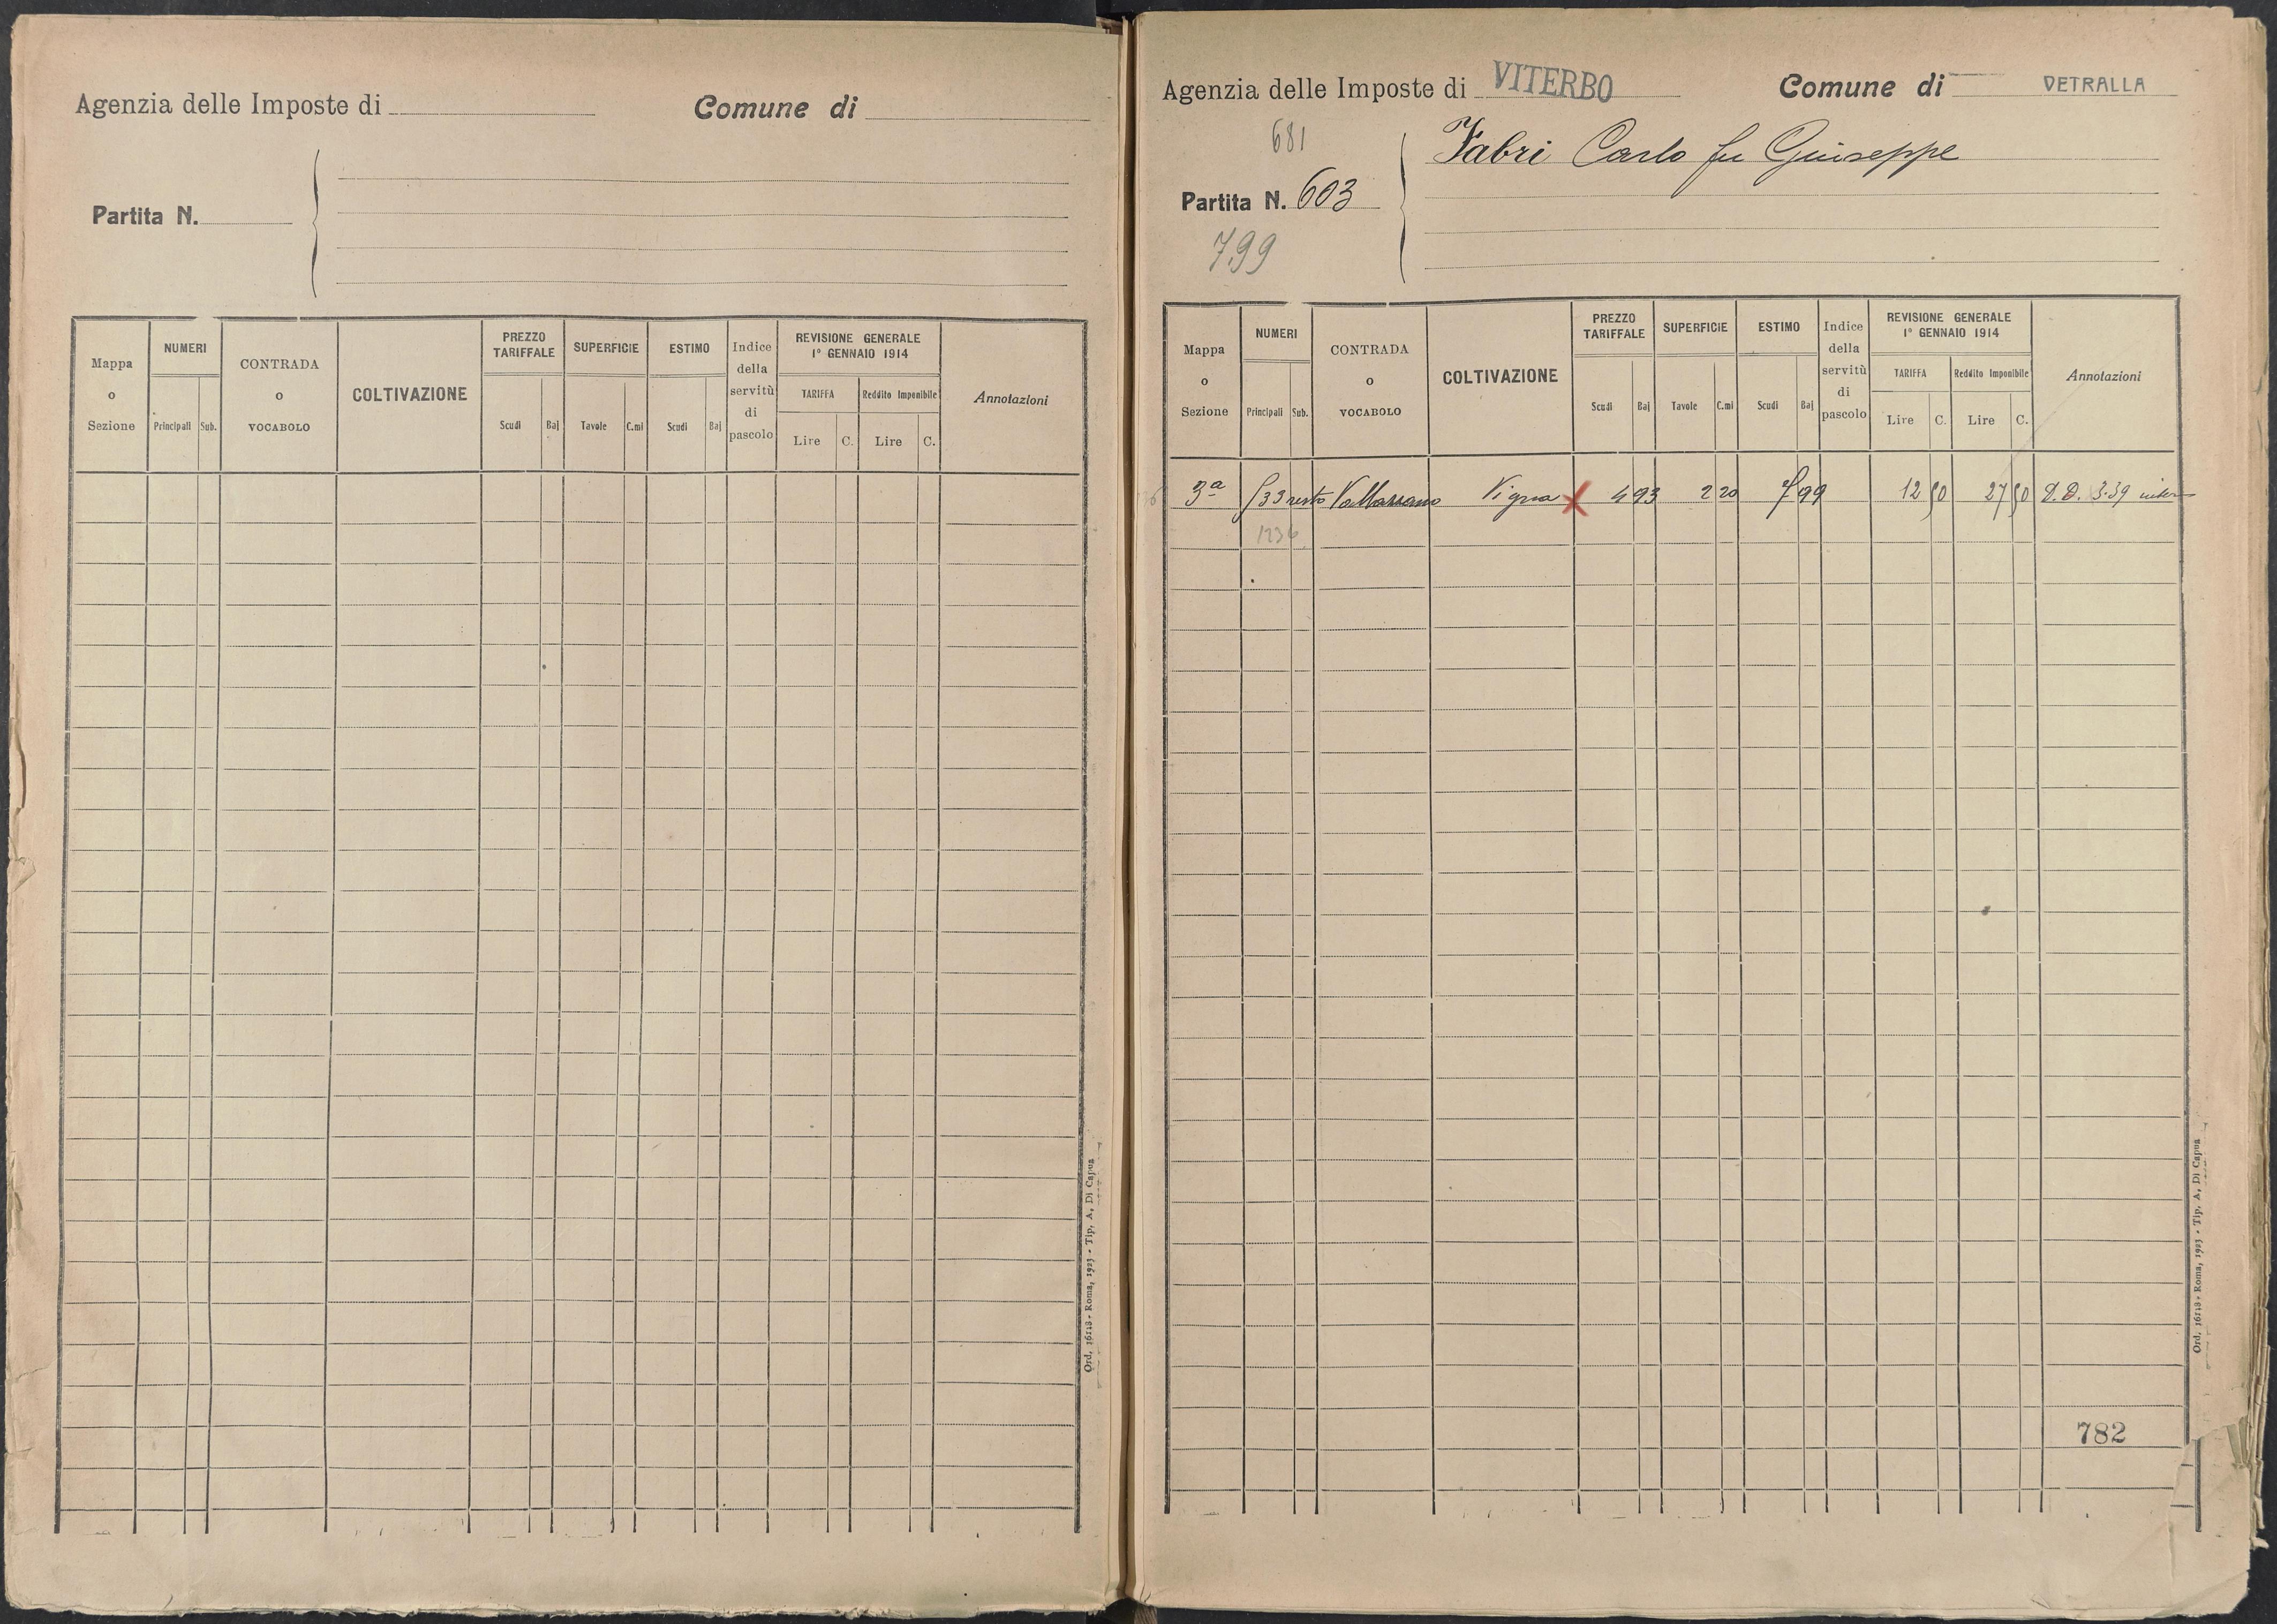 Agenzia delle Imposte di
Comune di
Partita N.
Mappa o Sezione
NUMERI
Principali Sub.
CONTRADA o VOCABOLO
COLTIVAZIONE
PREZZO TARIFFALE
Scudi Baj
SUPERFICIE
Tavole C.mi
ESTIMO
Scudi Baj
Indice della servitù di pascolo
REVISIONE GENERALE
1° GENNAIO 1914
TARIFFA
Lire C.
Reddito Imponibile
Lire C.
Annotazioni
Ord. 16118 - Roma, 1923 - Tip. A. Di Capua
Agenzia delle Imposte di VITERBO
Comune di VETRALLA
681
Fabri Carlo fu Giuseppe
Partita N. 603
799
Mappa o Sezione
NUMERI
Principali Sub.
CONTRADA o VOCABOLO
COLTIVAZIONE
PREZZO TARIFFALE
Scudi Baj
SUPERFICIE
Tavole C.mi
ESTIMO
Scudi Baj
Indice della servitù di pascolo
REVISIONE GENERALE
1° GENNAIO 1914
TARIFFA
Lire C.
Reddito Imponibile
Lire C.
Annotazioni
3ª 533 resto Vigna X 493 2 20 7 99 12 50 27 50 3.39
1236
782
Ord. 16118 - Roma, 1923 - Tip. A. Di Capua